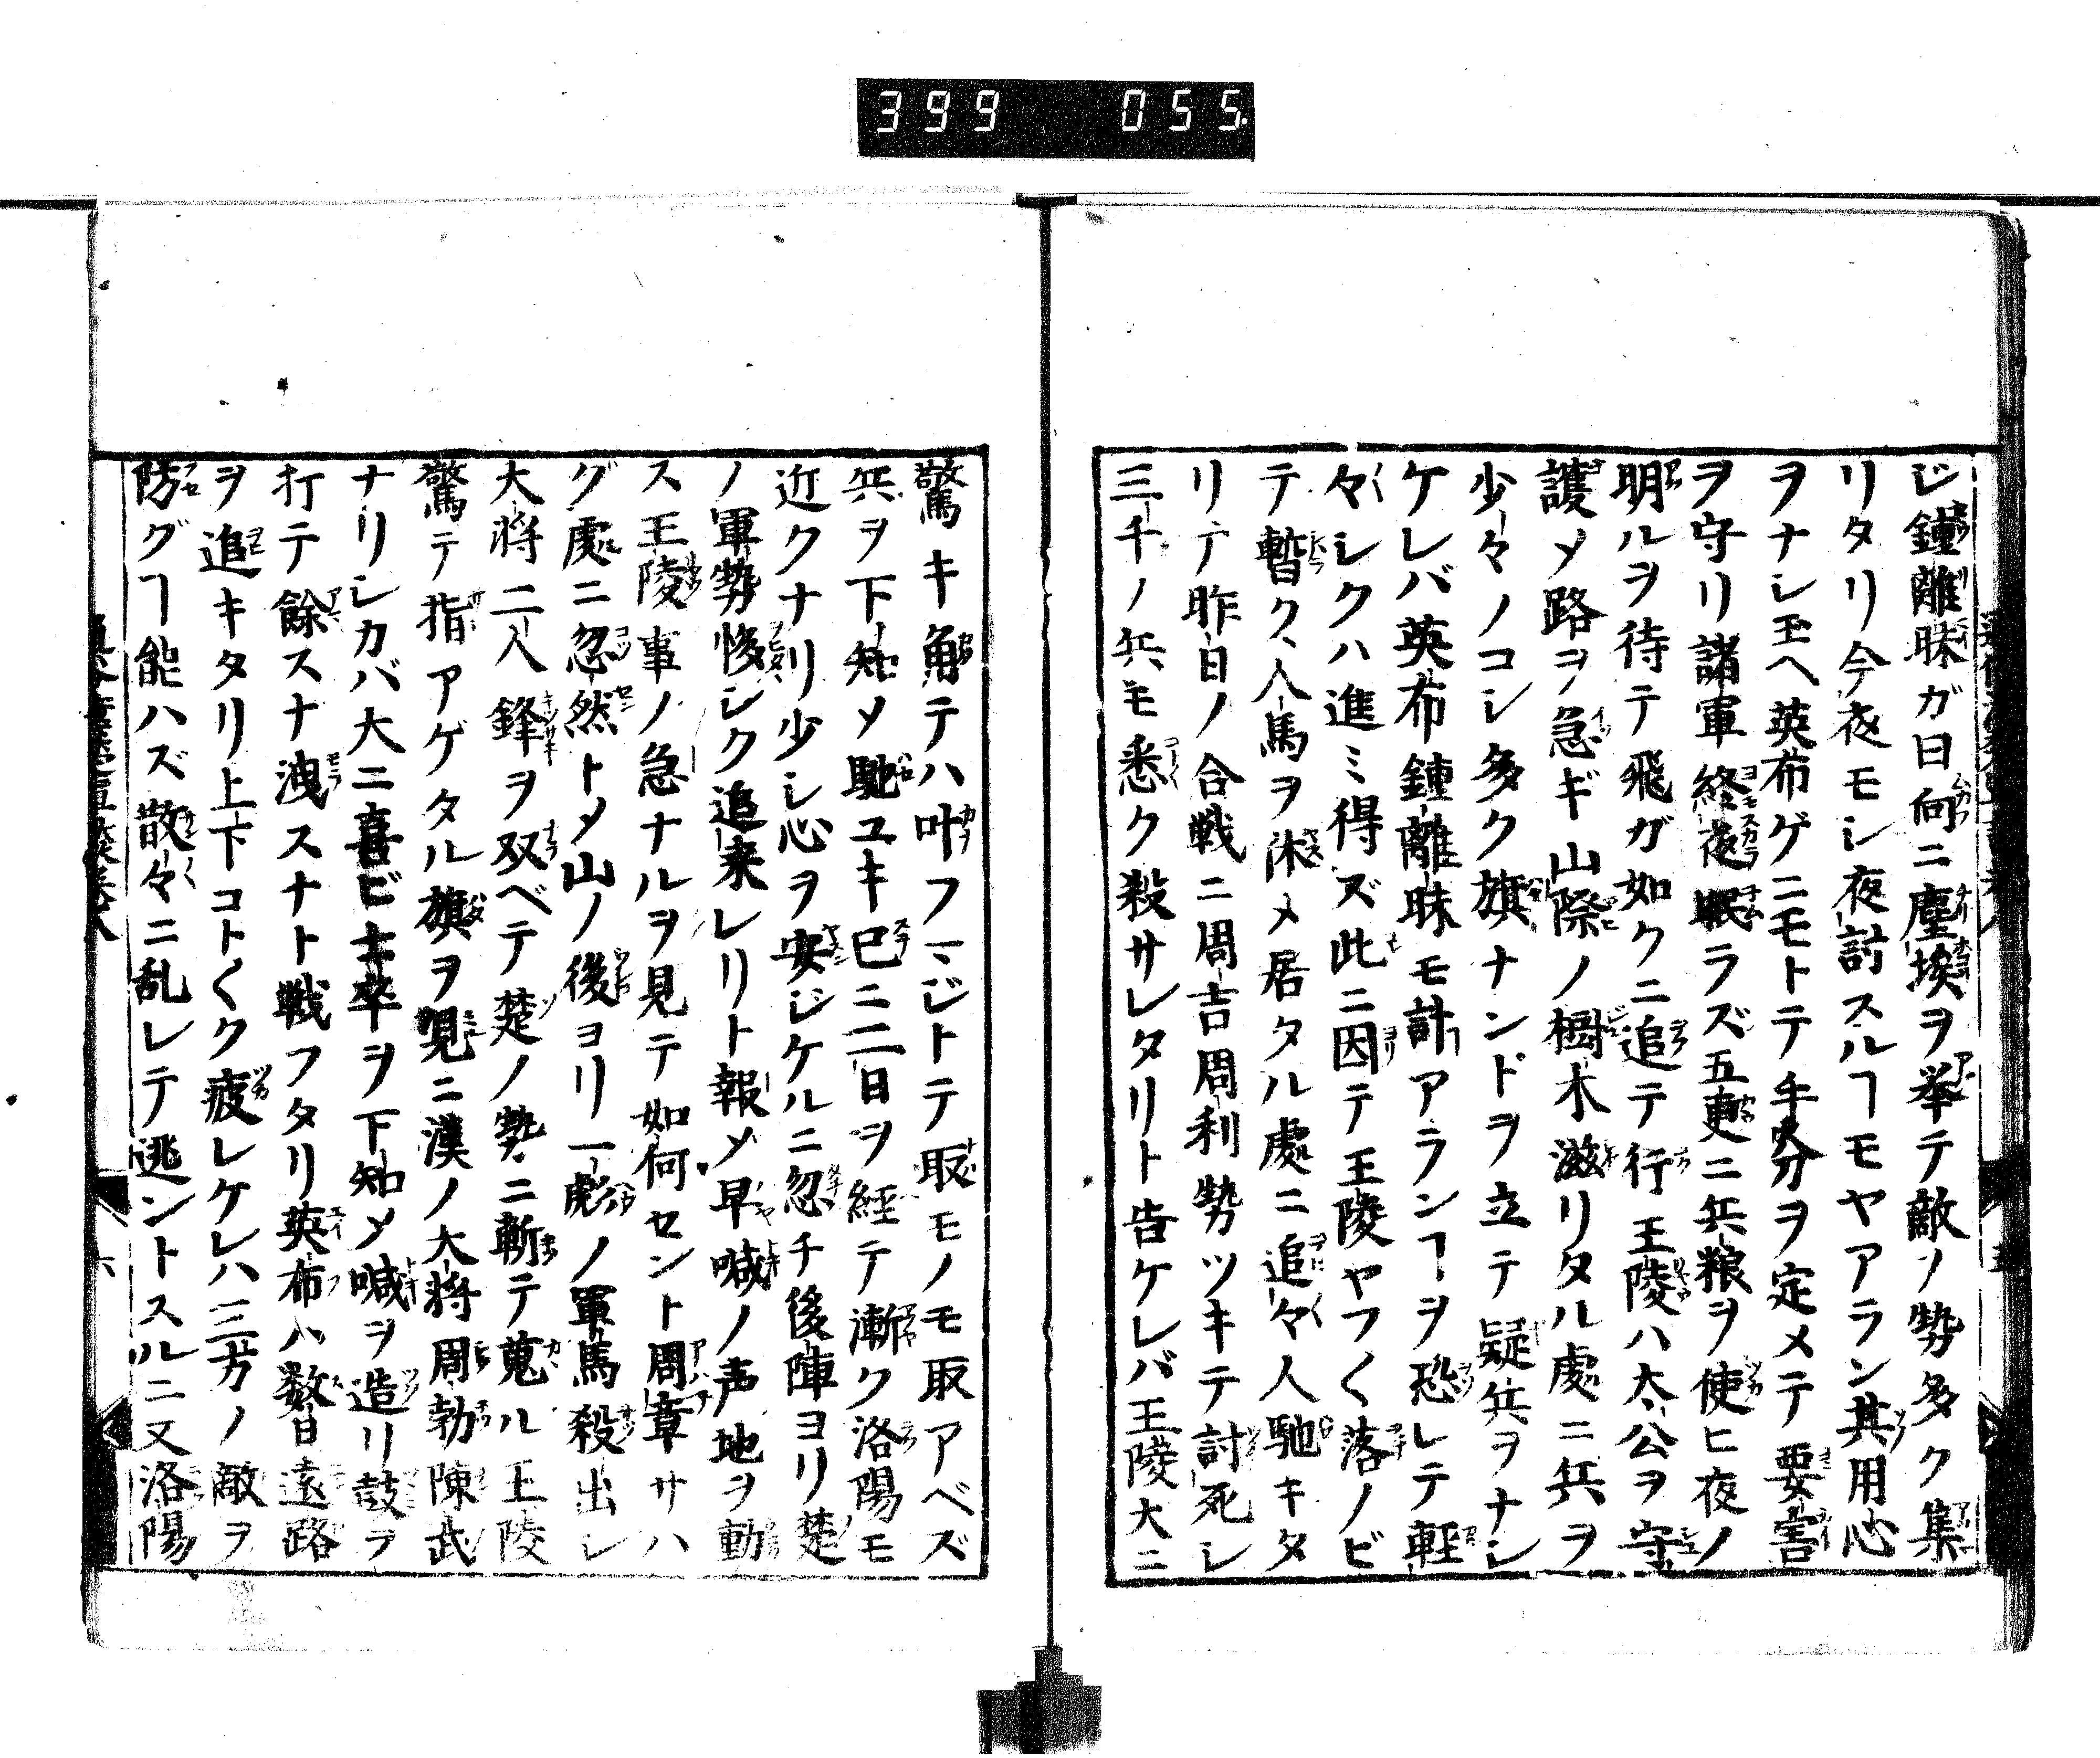 399 055
ジ鐘離昧ガ曰向ニ塵埃ヲ挙テ敵ノ勢多ク集
リタリ今夜モシ夜討スルヿモヤアラン其用心
ヲナシ玉ヘ英布ゲニモトテ手分ヲ定メテ要害
ヲ守リ諸軍終夜眠ラズ五更ニ兵粮ヲ使ヒ夜ノ
明ルヲ待テ飛ガ如クニ追テ行王陵ハ太公ヲ守
護メ路ヲ急ギ山際ノ樹木滋リタル處ニ兵ヲ
少々ノコシ多ク旗ナンドヲ立テ疑兵ヲナシ
ケレバ英布鐘離昧モ計アランヿヲ恐レテ軽
々シクハ進ミ得ズ此ニ因テ王陵ヤフ〱落ノビ
テ暫ク人馬ヲ休メ居タル處ニ追々人馳キタ
リテ昨日ノ合戦ニ周吉周利勢ツキテ討死シ
三千ノ兵モ悉ク殺サレタリト告ケレバ王陵大ニ
驚キ角テハ叶フマジトテ取モノモ取アベズ
兵ヲ下知メ馳ユキ已ニ二日ヲ経テ漸ク洛陽モ
近クナリ少シ心ヲ安ジケルニ忽チ後陣ヨリ楚
ノ軍勢惨シク追来レリト報メ早喊ノ声地ヲ動
ス王陵事ノ急ナルヲ見テ如何セント周章サハ
グ處ニ忽然トメ山ノ後ヨリ一彪ノ軍馬殺出シ
大将二人鋒ヲ双ベテ楚ノ勢ニ斬テ蒐ル王陵
驚テ指アゲタル旗ヲ見ニ漢ノ大将周勃陳武
ナリシカバ大ニ喜ビ士卒ヲ下知メ喊ヲ造リ鼓ヲ
打テ餘スナ洩スナト戦フタリ英布ハ数日遠路
ヲ追キタリ上下コト〱ク疲レケレハ三方ノ敵ヲ
防グヿ能ハズ散々ニ乱レテ逃ントスルニ又洛陽
六